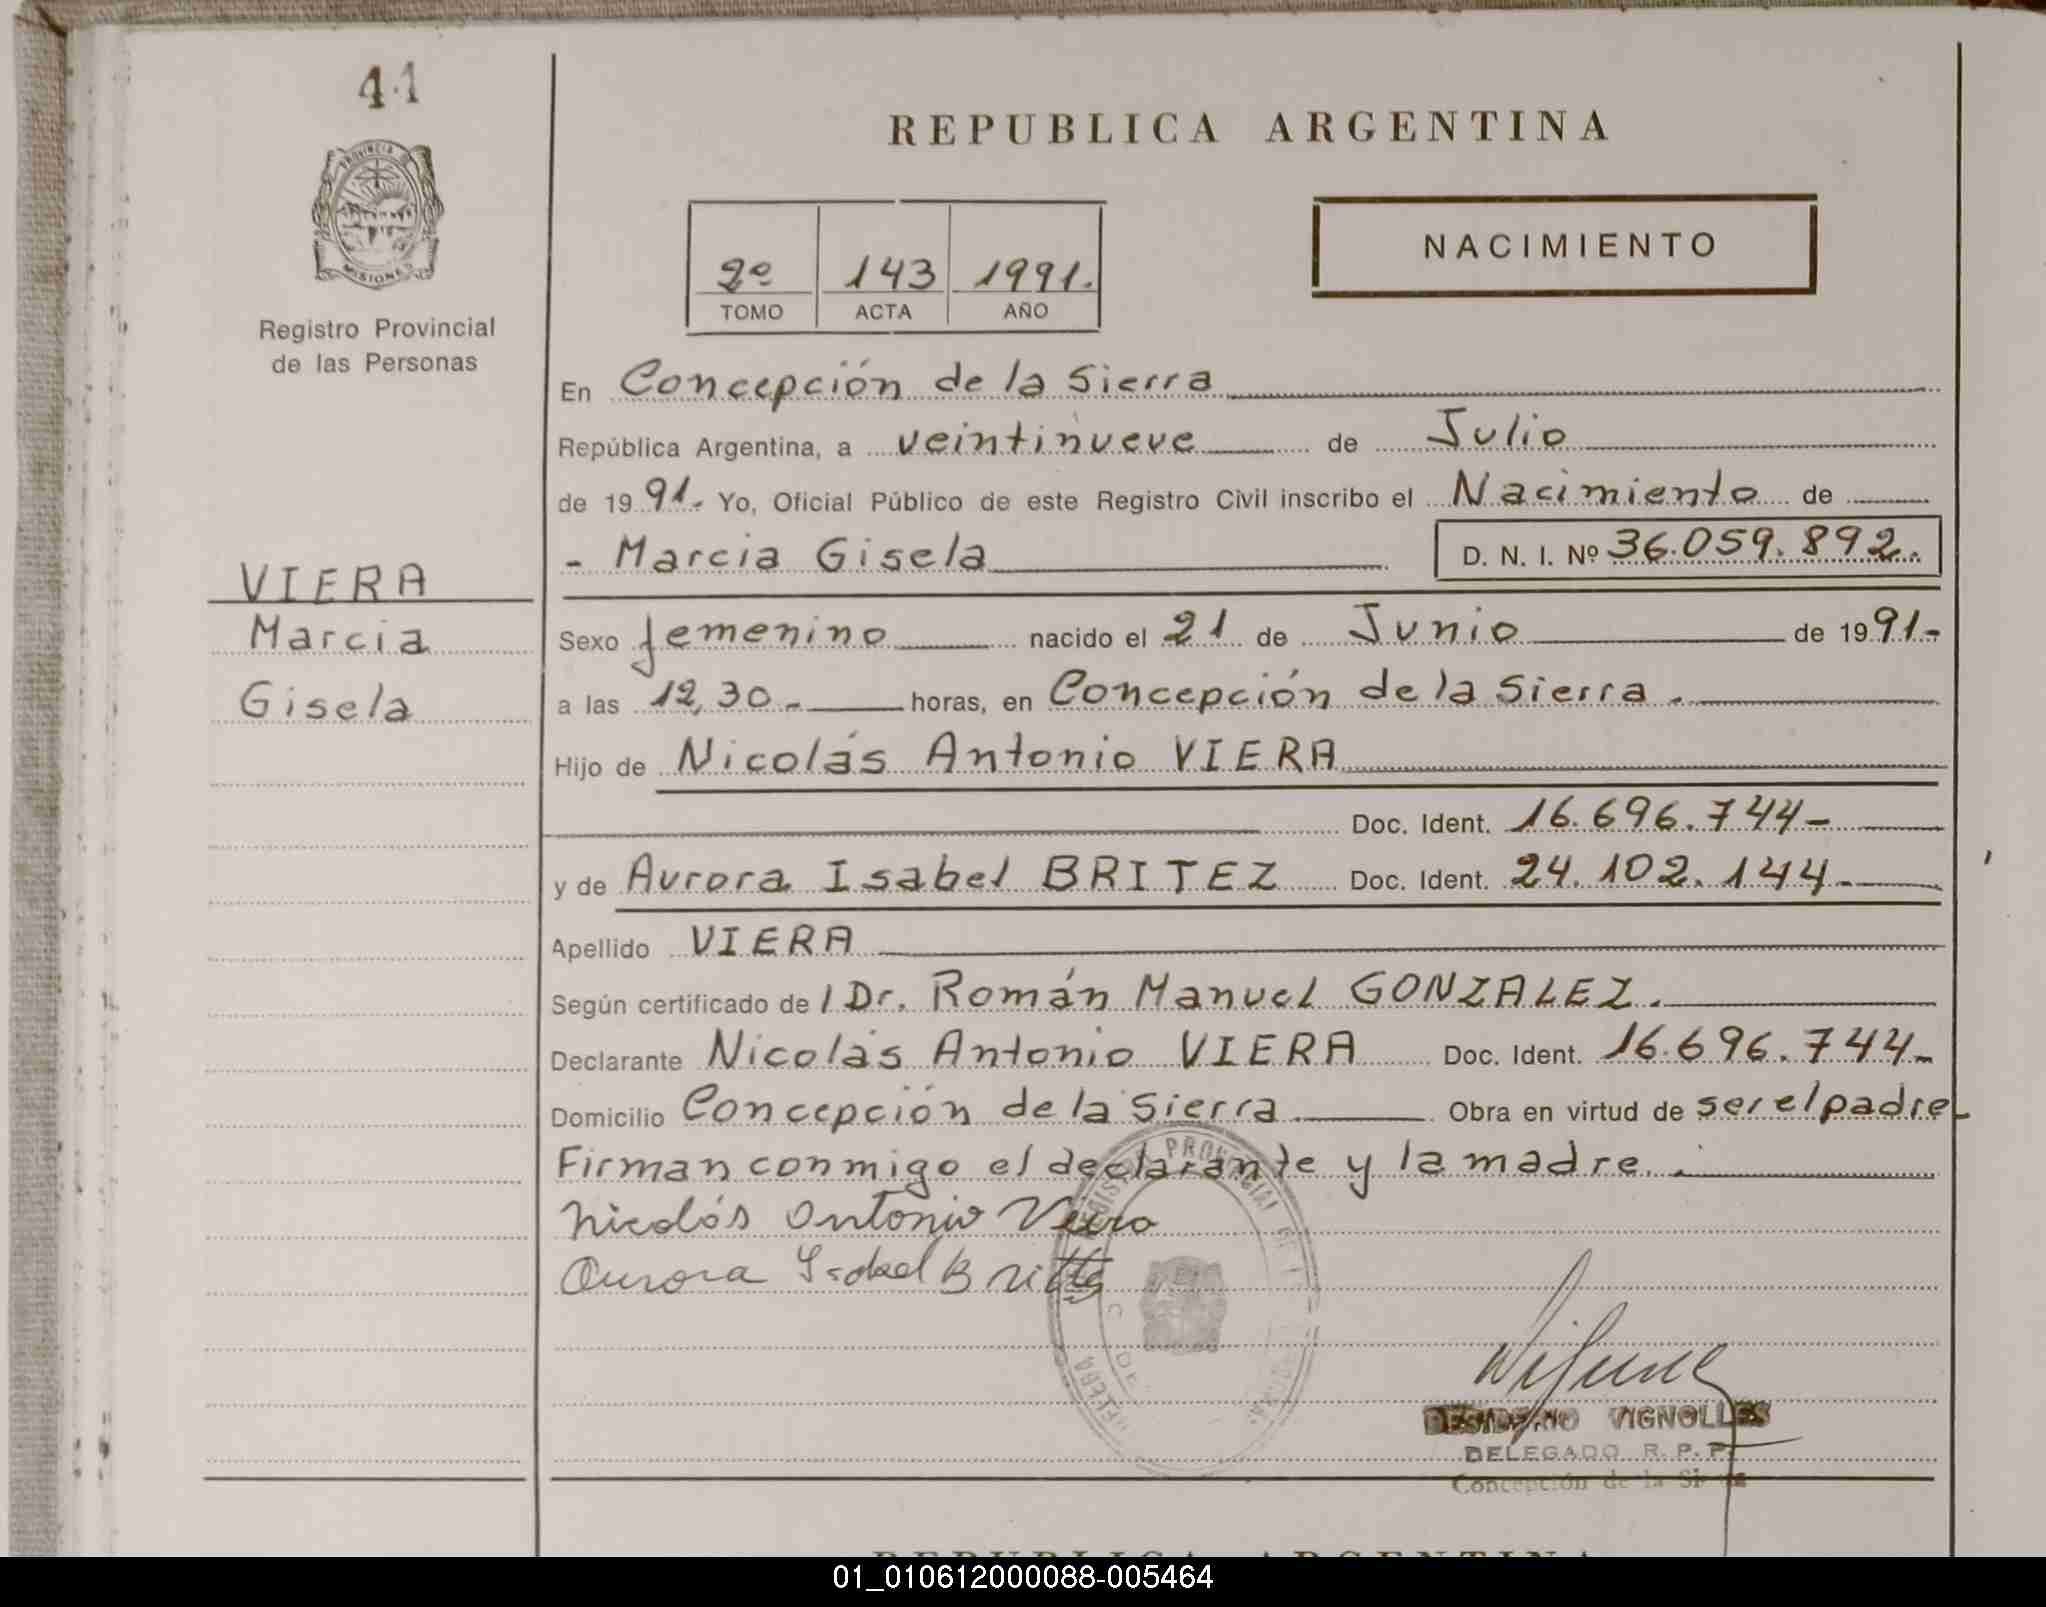 41
PROVINCIA DE
MISIONES
Registro Provincial
de las Personas
REPUBLICA ARGENTINA
NACIMIENTO
2º 143 1991.
TOMO ACTA AÑO
En Concepción de la Sierra
República Argentina, a veintinueve de Julio
de 1991. Yo, Oficial Público de este Registro Civil inscribo el Nacimiento de
- Marcia Gisela D. N. I. Nº 36.059.892.
VIERA
Marcia
Gisela
Sexo femenino nacido el 21 de Junio de 1991-
a las 12,30.- horas, en Concepción de la Sierra.
Hijo de Nicolás Antonio VIERA
Doc. Ident. 16.696.744-
y de Aurora Isabel BRITEZ Doc. Ident. 24.102.144.-
Apellido VIERA
Según certificado de / Dr. Román Manuel GONZALEZ.
Declarante Nicolás Antonio VIERA Doc. Ident. 16.696.744-
Domicilio Concepción de la Sierra. Obra en virtud de ser el padre-
Firman conmigo el declarante y la madre.
Nicolás Antonio Viera
Aurora Isabel Britez
REGISTRO PROVINCIAL DE
DESIDERIO VIGNOLLES
DELEGADO R. P. P.
Concepción de la Sierra
REPUBLICA ARGENTINA
01_010612000088-005464